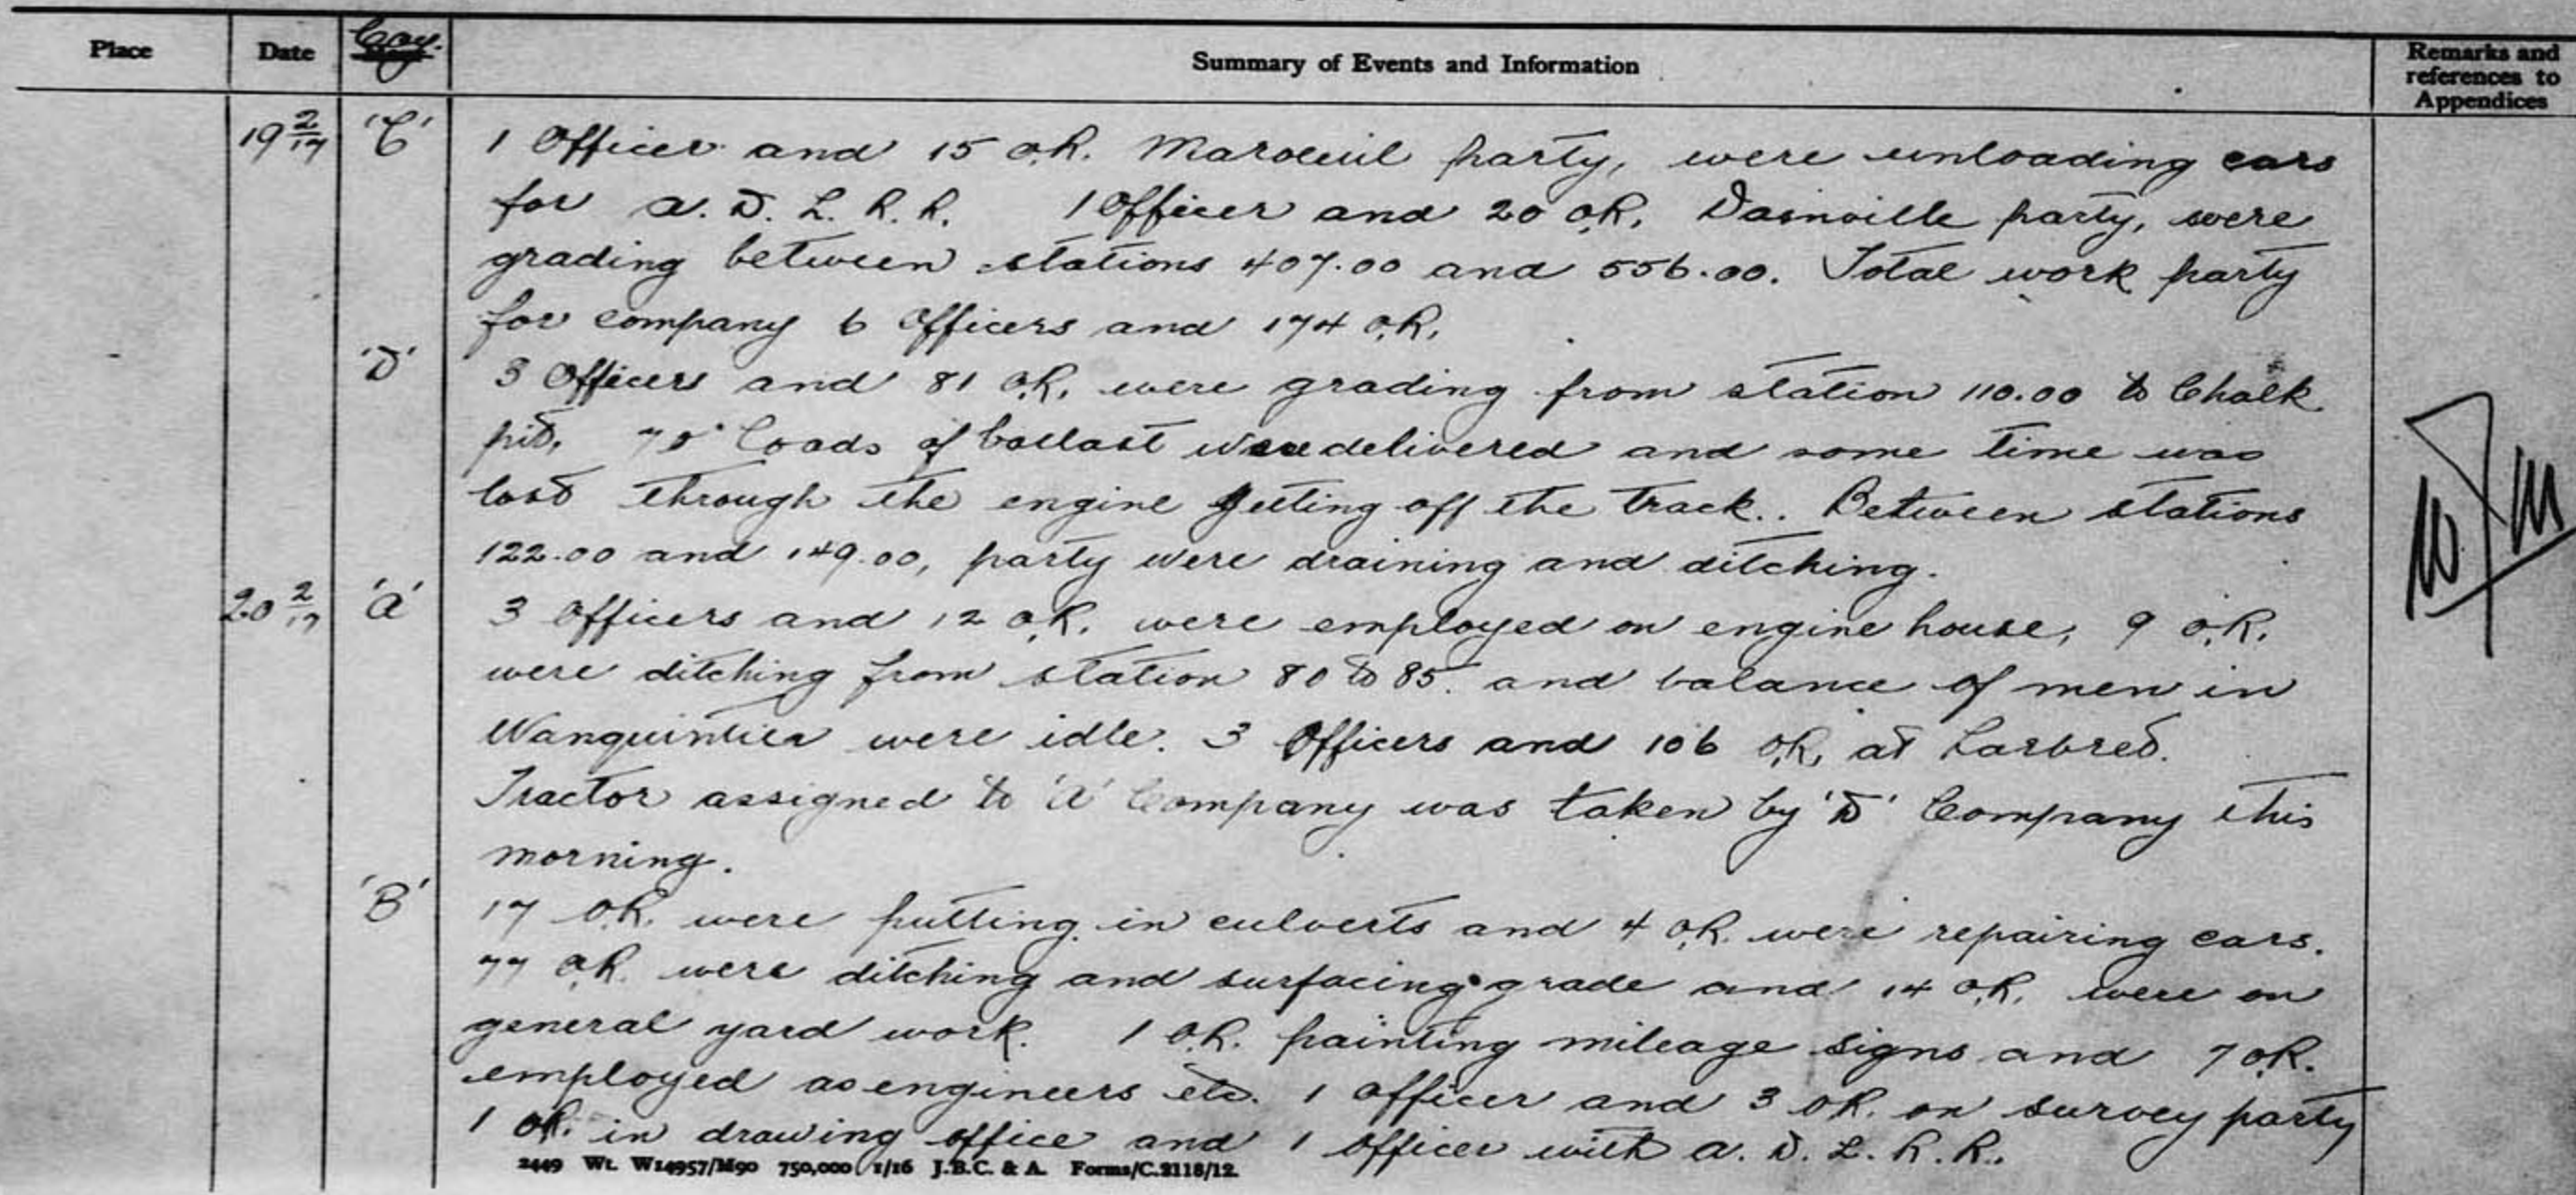 Place Date Coy. Summary of Events and Information Remarks and references to Appendices
19 2/17 'C' 1 Officer and 15 O.R. Maroeuil party, were unloading cars
for A. D. L. R. R. 1 Officer and 20 O.R. Dainville party, were
grading between stations 407.00 and 556.00. Total work party
for company 6 Officers and 174 O.R.
'D' 3 Officers and 81 O.R. were grading from station 110.00 to Chalk
pit. loads of ballast were delivered and some time was
lost through the engine getting off the track. Between stations
122.00 and 149.00, party were draining and ditching.
20 2/17 'A' 3 Officers and 12 O.R. were employed on engine house, 9 O.R.
were ditching from station 80 to 85. and balance of men in
Wanquintin were idle. 3 Officers and 106 O.R. at Larbret.
Tractor assigned to 'A' Company was taken by 'D' Company this
morning.
'B' 17 O.R. were putting in culverts and 4 O.R. were repairing cars.
77 O.R. were ditching and surfacing grade and 14 O.R. were on
general yard work. 1 O.R. painting mileage signs and 7 O.R.
employed as engineers etc. 1 Officer and 3 O.R. on survey party
1 O.R. in drawing office and 1 officer with A. D. L. R. R.
2449 Wt. W14957/M90 750,000 1/16 J.B.C. & A. Forms/C.2118/12.